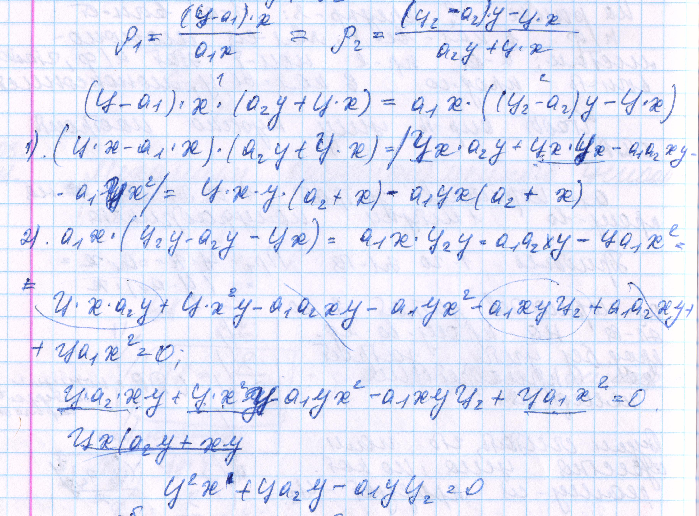 ρ₁ = ((Ц-a₁)·x)/(a₁x) = ρ₂ = ((Ц₂-a₂)·y-Ц·x)/(a₂y+Ц·x)
(Ц-a₁)·x·(a₂y+Ц·x) = a₁x·((Ц₂-a₂)y-Ц·x)
1).(Ц·x-a₁·x)·(a₂y+Ц·x)=/Цx·a₂y+Цx·Цx-a₁a₂xy-
-a₁Цx²/= Ц·x·y·(a₂+x)-a₁yx(a₂+x)
2). a₁x·(Ц₂y-a₂y-Цx)= a₁x·Ц₂y-a₁a₂xy-Цa₁x²=
=
Ц·x·a₂y+Ц·x²y-a₁a₂xy-a₁yx²-a₁xyЦ₂+a₁a₂xy+
+Цa₁x²=0;
Ц·a₂·xy+Ц·x²y-a₁yx²-a₁xyЦ₂+Цa₁x²=0.
Цx(a₂y+xy
Ц²x+Цa₂y-a₁yЦ₂=0